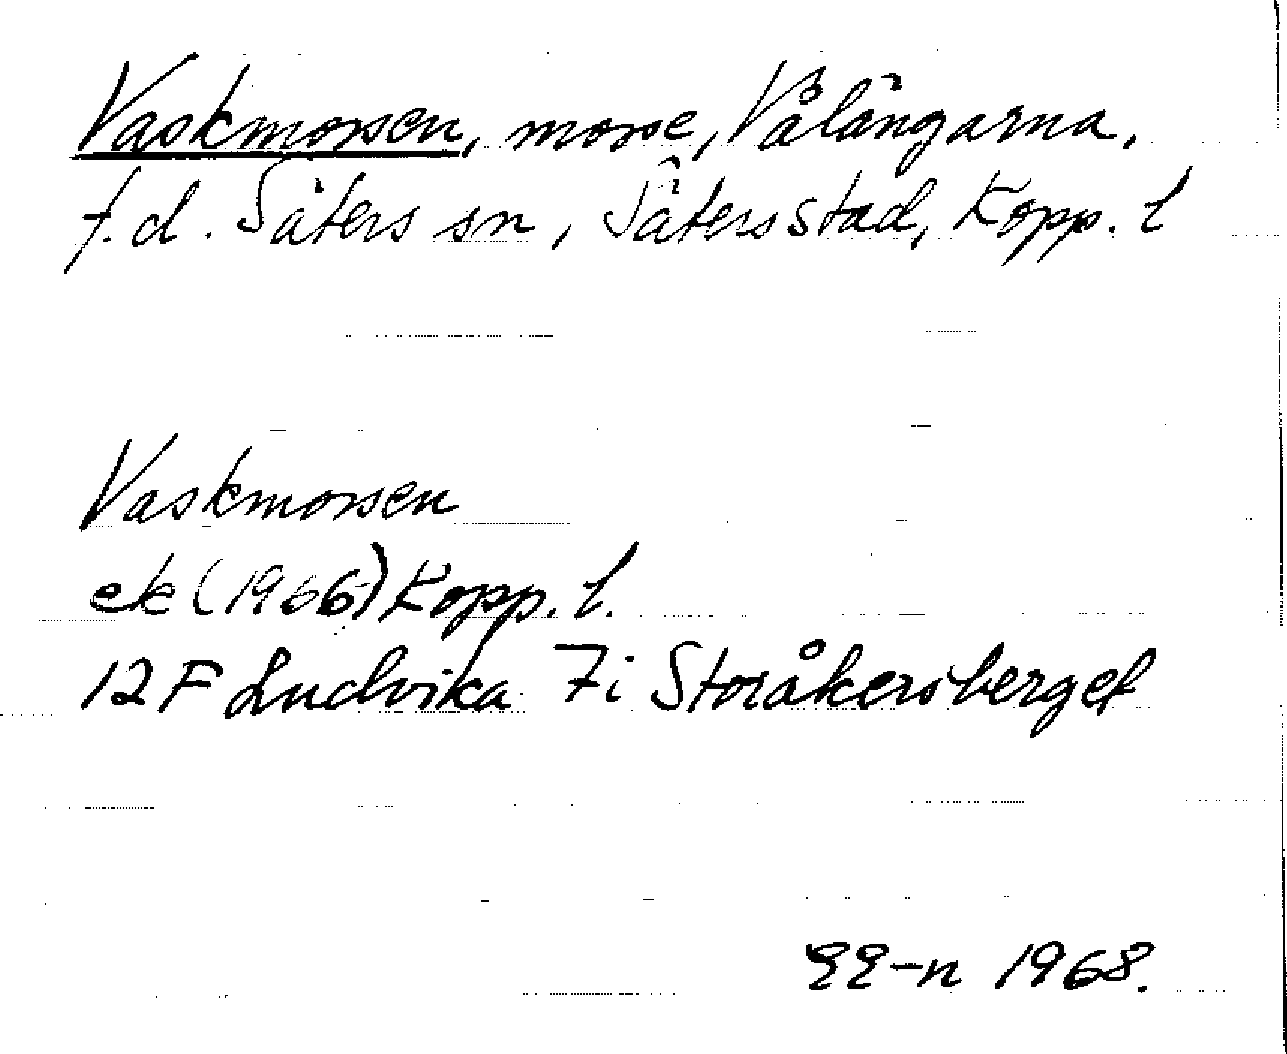 Vaskmossen, mosse, Vålångarna,
f.d. Säters sn, Säters stad, Kopp. l
Vaskmossen
ek (1966) Kopp. l.
12 F Ludvika 7i Storåkersberget
EE-n 1968.